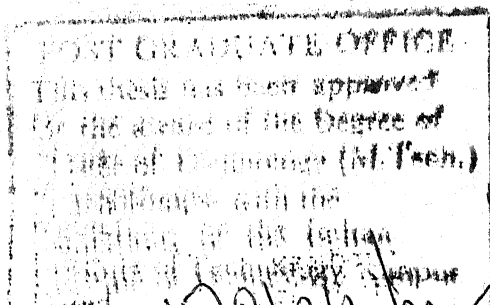 POST GRADUATE OFFICE
This thesis has been approved
for the award of the Degree of
Master of Technology (M.Tech.)
in accordance with the
regulations of the Indian
Institute of Technology Kanpur